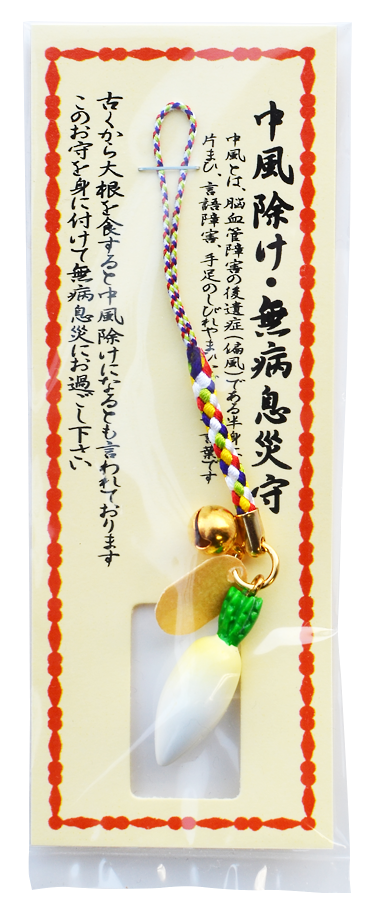 中風除け・無病息災守
中風とは、脳血管障害の後遺症(偏風)である半身
片まひ、言語障害、手足のしびれやまひ
言葉です
古くから大根を食すると中風除けになるとも言われております
このお守を身に付けて無病息災にお過ごし下さい